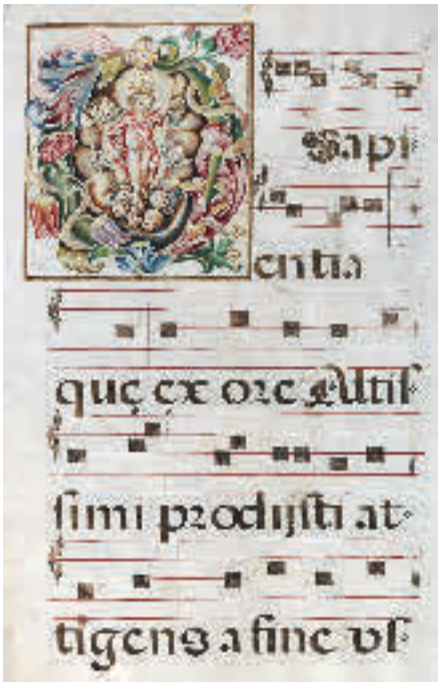 O Sapi
entia
quę ex ore Altiſ
ſimi prodijſti at-
tigens a fine vſ-